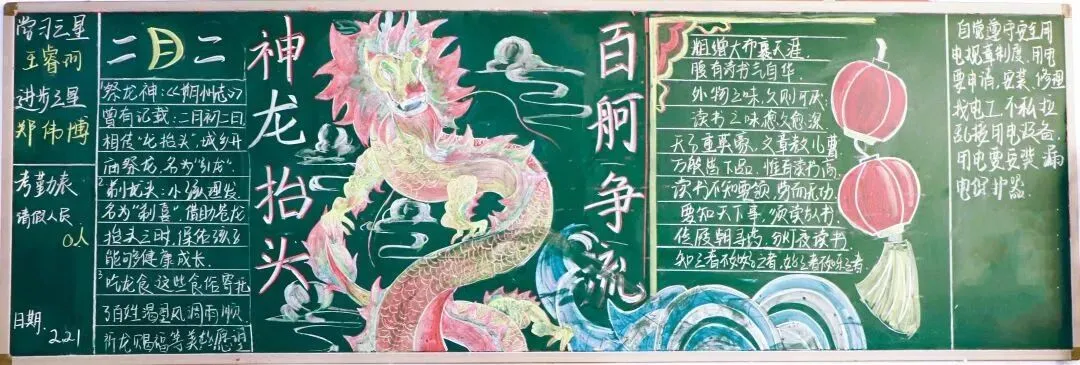 学习之星
王睿词
进步之星
郑伟博
考勤表
请假人员
0人
日期:
2.21
二月二
祭龙神:《明州志》
曾有记载:二月初二日
相传“龙抬头”,城乡开
庙祭龙,名为“引龙”.
2剃龙头:小孩理发,
名为“剃喜”借助苍龙
抬头之时,保佑孩子
能够健康成长.
3吃龙食:这些食俗寄托
了百姓渴望风调雨顺、
祈龙赐福等美好愿望
神龙抬头
百舸争流
粗缯大布裹天涯,
腹有诗书气自华.
外物之味,久则可厌;
读书之味,愈久愈深.
天子重英豪,文章教儿曹
万般皆下品,惟有读书高
读书不知要领,劳而无功
要知天下事,须读古人书
信履朝寻药,分灯夜读书
知之者不如好之者,好之者不如乐之者.
自觉遵守安全用
电规章制度,用电
要申请,安装、修理
找电工,不私拉
乱接用电设备.
用电要安装漏
电保护器.